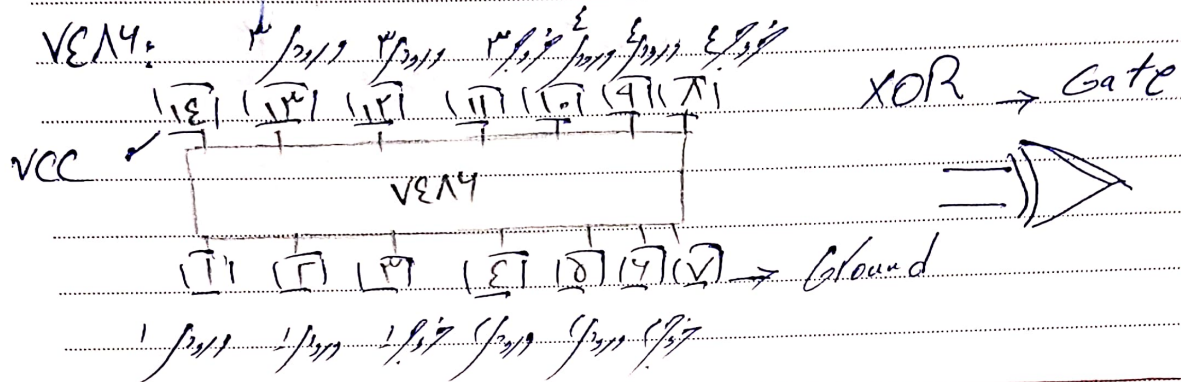 ۷٤۸۶: ورودی ۳ ورودی ۳ خروجی ۳ ورودی ٤ ورودی ٤ خروجی ٤
۱٤ ۱۳ ۱۲ ۱۱ ۱۰ ۹ ۸ XOR → Gate
VCC
۷٤۸۶
۱ ۲ ۳ ٤ ۵ ۶ ۷ → Ground
ورودی ۱ ورودی ۱ خروجی ۱ ورودی ۲ ورودی ۲ خروجی ۲